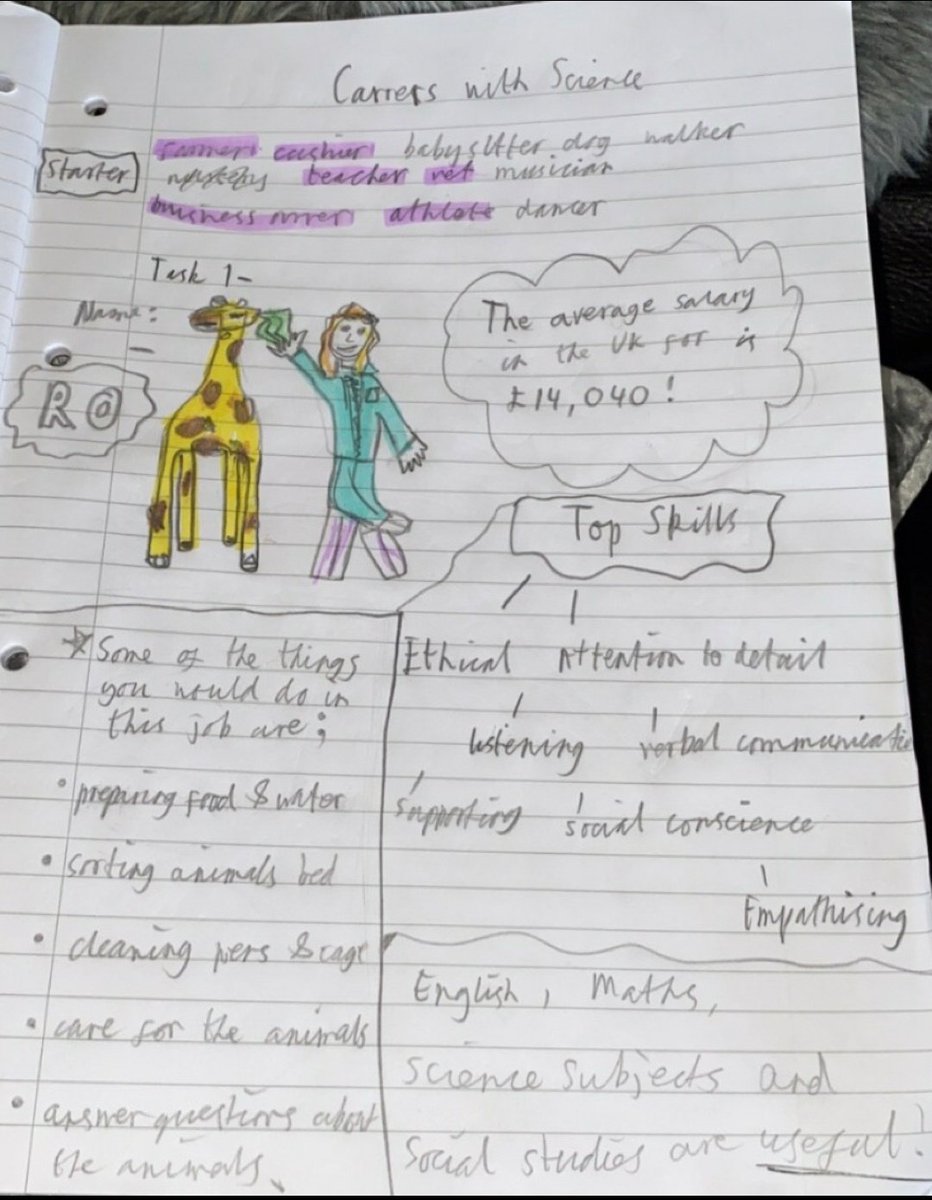 Carrers with Science
Starter
farmer cashier babysitter dog walker
teacher vet musician
business owner athlete dancer
Task 1-
Name:
R@
The average salary
in the UK for is
£14,040!
Top Skills
Ethical Attention to detail
listening verbal communicatio
supporting social conscience
Empathising
*Some of the things
you would do in
this job are;
• preparing food & water
• sorting animals bed
• cleaning pens & cage
• care for the animals
• answer questions about
the animals.
English, Maths,
Science subjects and
Social studies are useful!